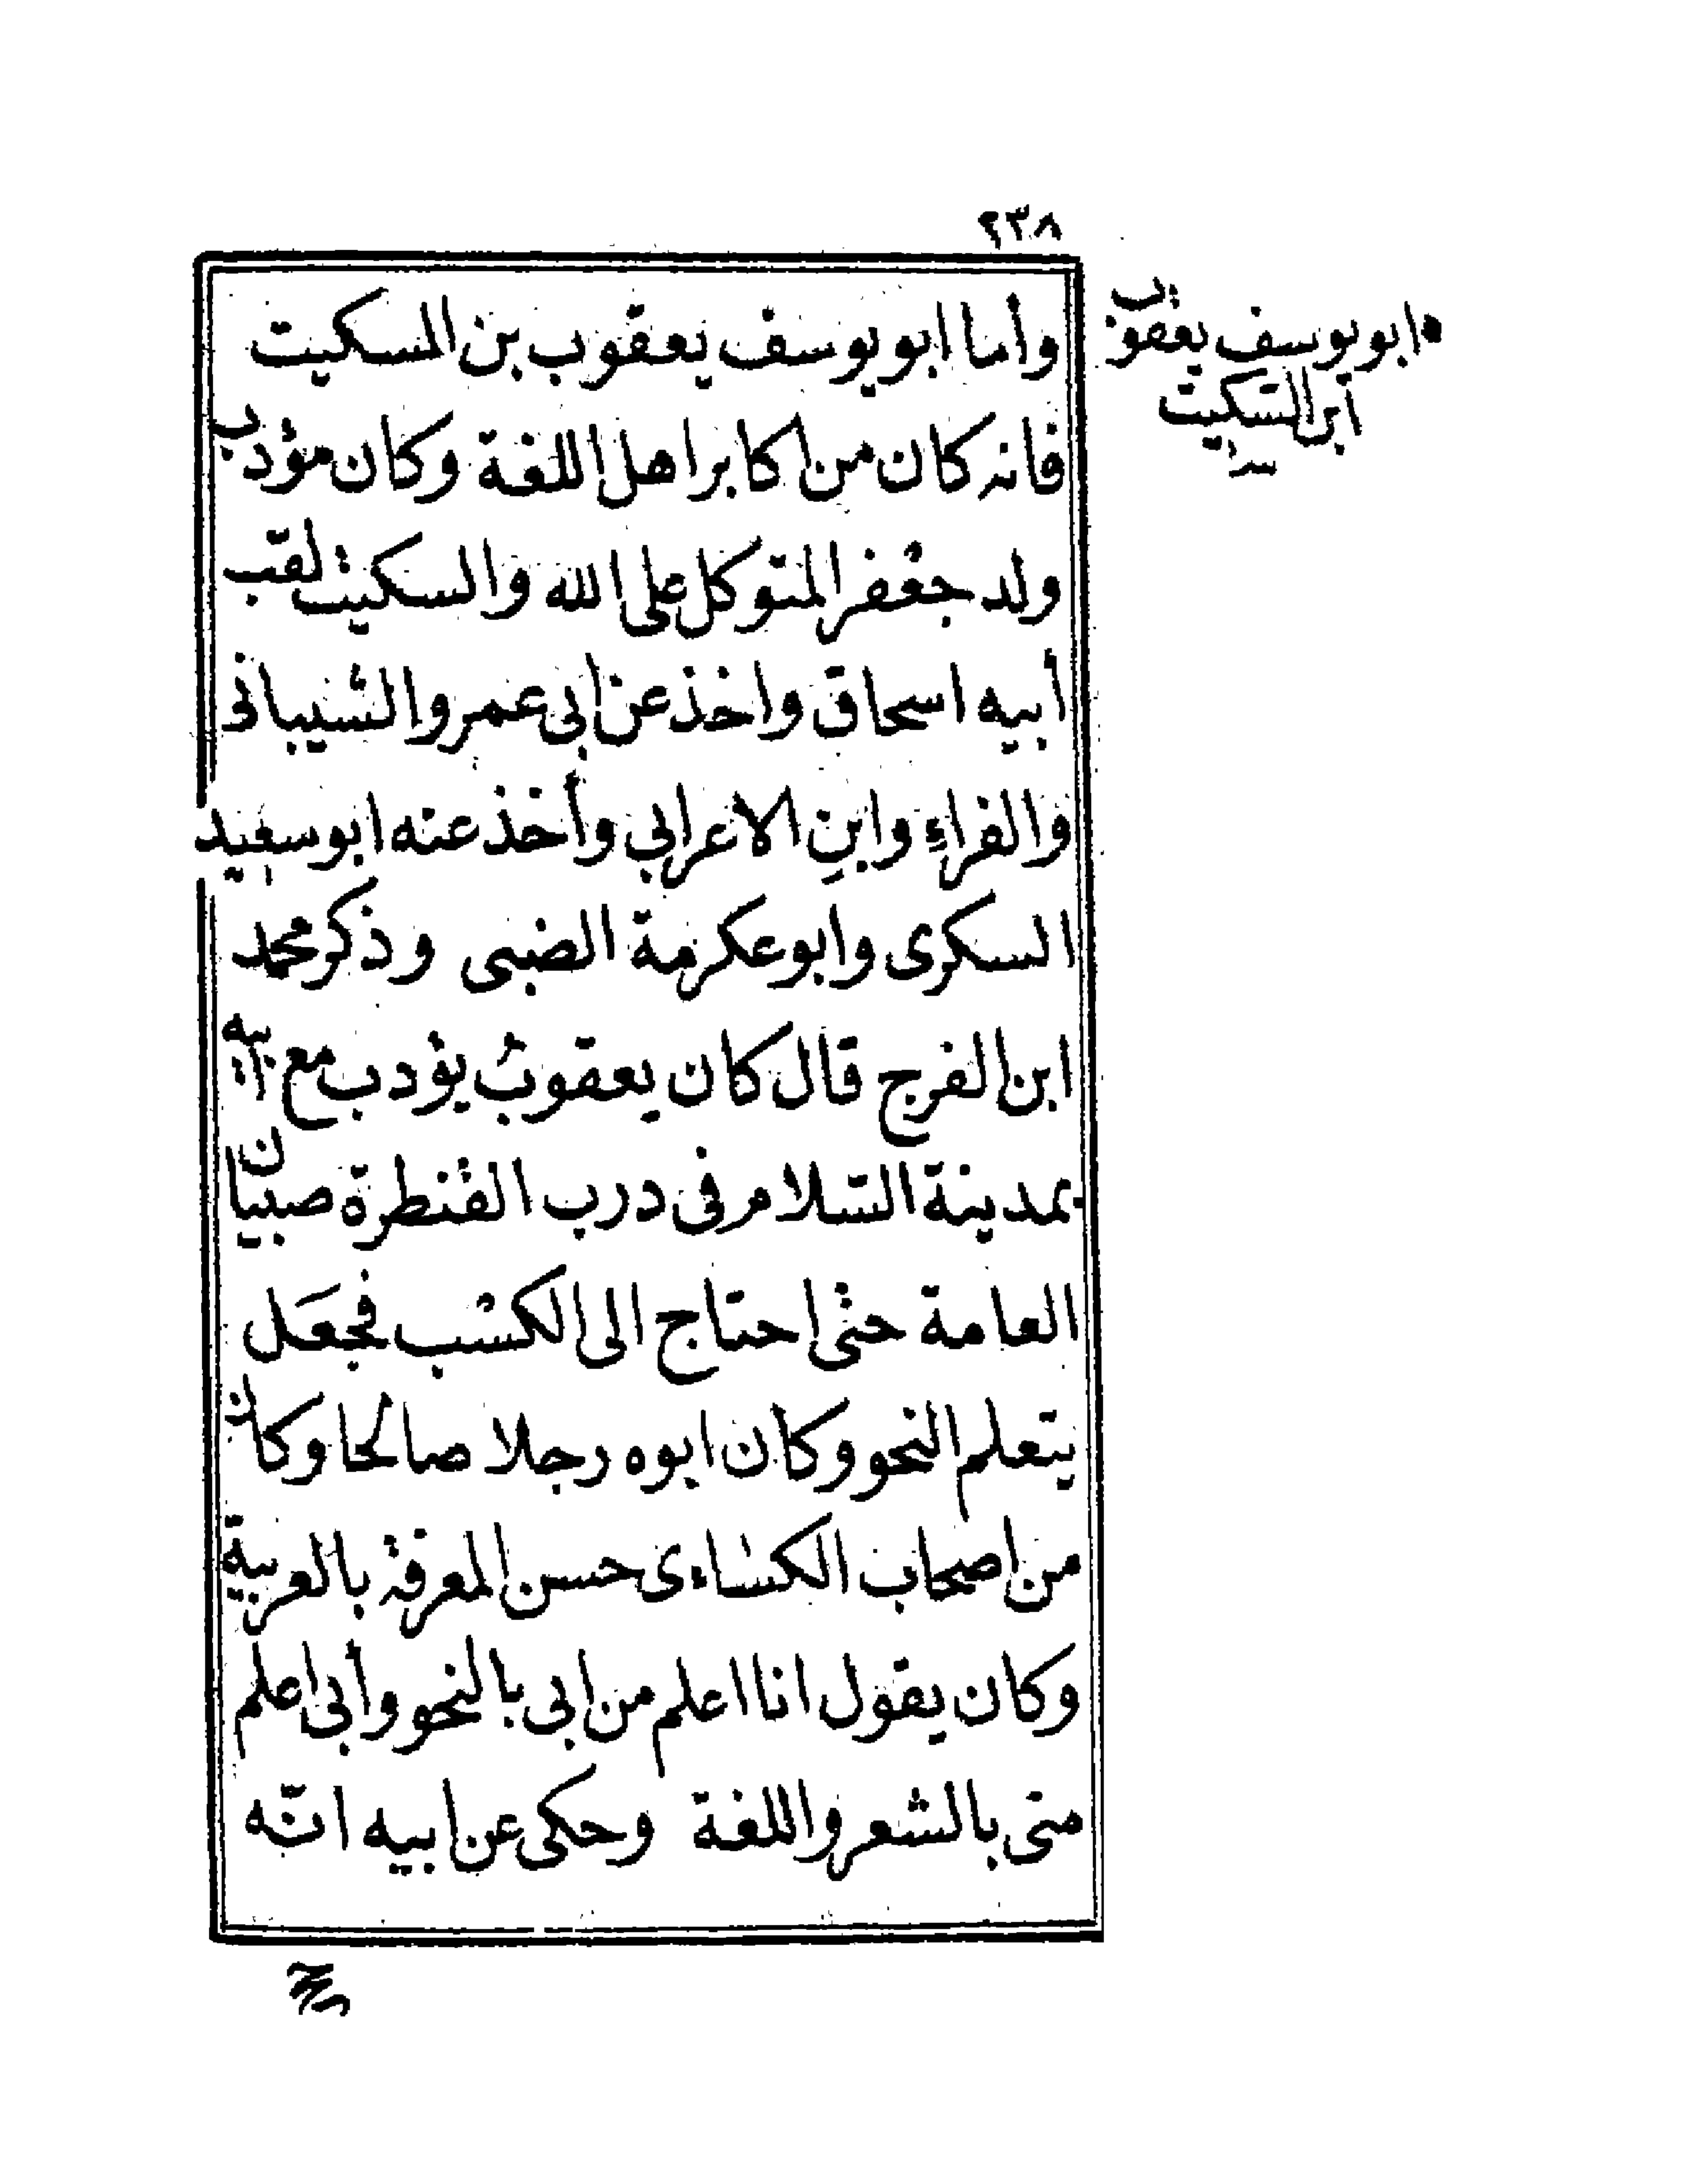 ٢٣٨
ابو يوسف يعقوب
ابن السكيت
وأما ابو يوسف يعقوب بن السكيت
فانه كان من اكابر اهل اللغة وكان مؤدب
ولد جعفر المتوكل على الله والسكيت لقب
أبيه اسحاق واخذ عن ابى عمرو الشيبانى
والفراءِ وابنِ الاعرابي وأخذ عنه ابو سعيد
السكرى وابو عكرمة الضبى وذكر محمد
ابن الفرج قال كان يعقوب يؤدب مع ابيه
بمدينة السّلام فى درب القنطرة صبيان
العامة حتى احتاج الى الكسب فجعَل
يتعلم النحو وكان ابوه رجلا صالحا وكان
من اصحاب الكساءى حسن المعرفة بالعربية
وكان يقول انا اعلم من ابى بالنحو وأبى اعلم
منى بالشعر واللغة وحكى عن ابيه انّه